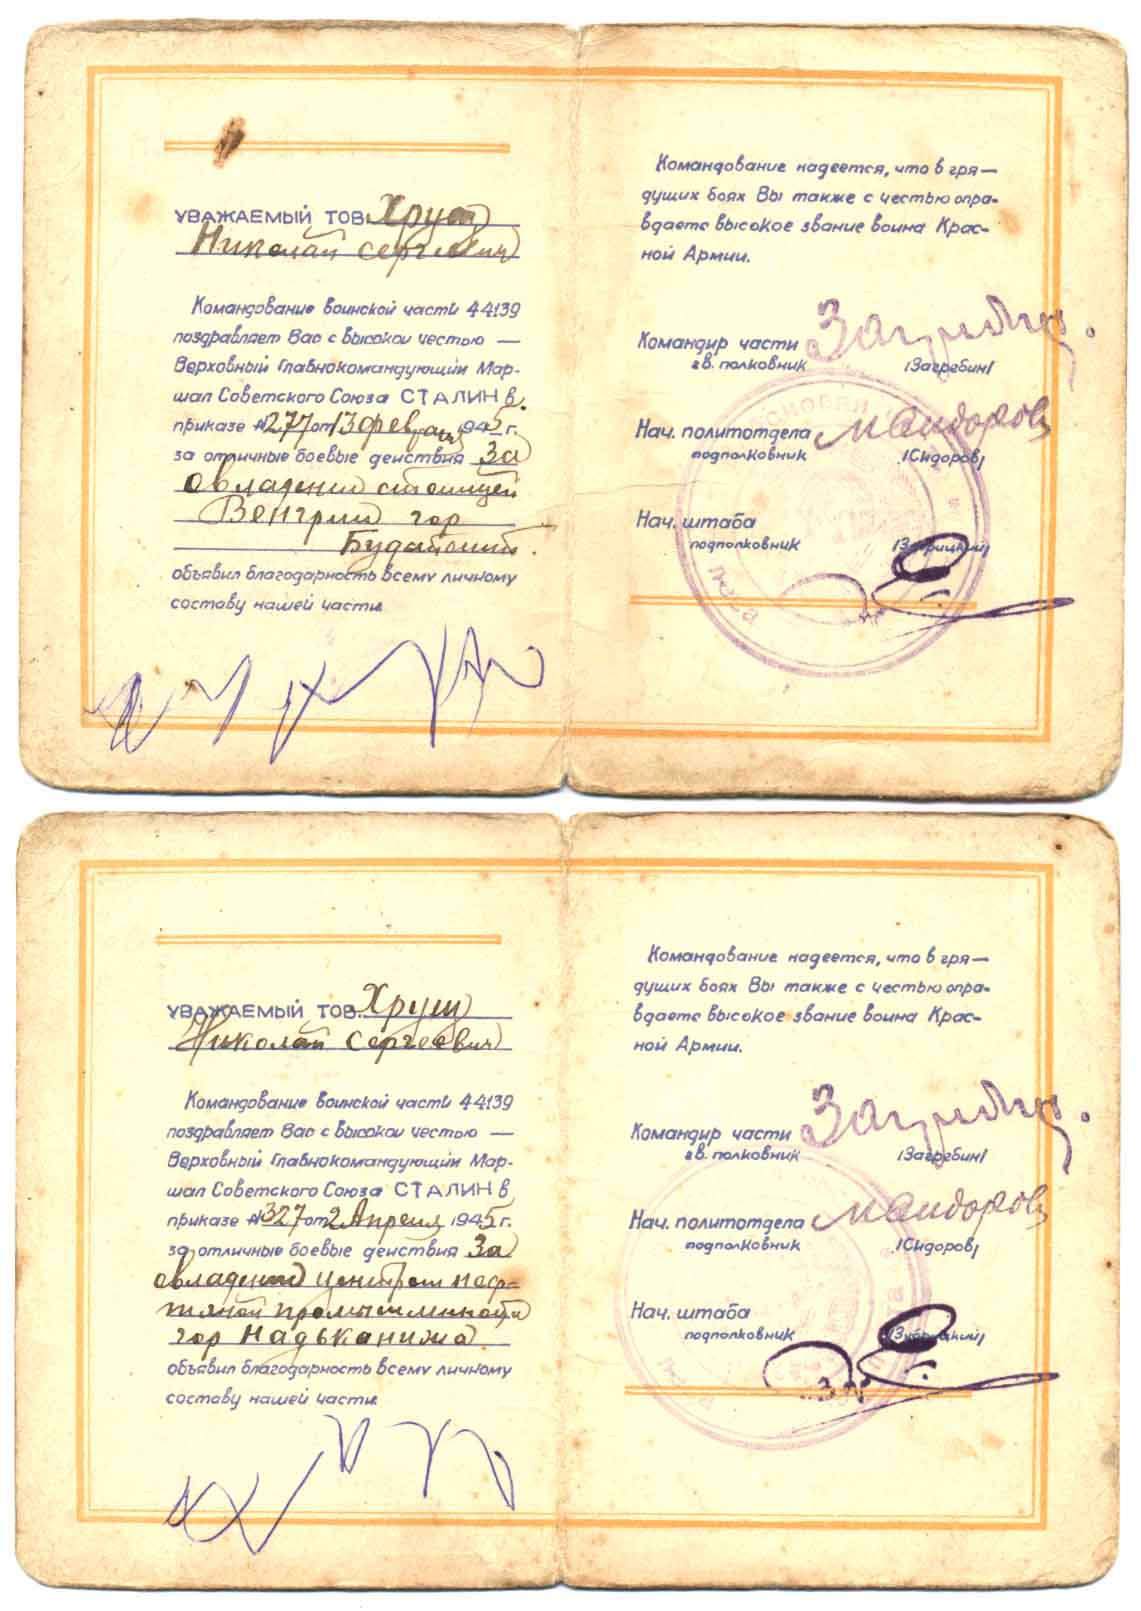 УВАЖАЕМЫЙ ТОВ. Хрущ
Николай Сергеевич
Командование воинской части 44139
поздравляет Вас с высокой честью —
Верховный Главнокомандующий Мар-
шал Советского Союза СТАЛИН в
приказе № 277 от 13 февраля 1945 г.
за отличные боевые действия За
овладении столицей
Венгрии гор
Будапешт.
объявил благодарность всему личному
составу нашей части.
Командование надеется, что в гря—
дущих боях Вы также с честью опра-
вдаете высокое звание воина Крас-
ной Армии.
Командир части Загребин.
гв. полковник /Загребин/
Нач. политотдела МСидоров
подполковник /Сидоров/
Нач. штаба
подполковник
УВАЖАЕМЫЙ ТОВ. Хрущ
Николай Сергеевич
Командование воинской части 44139
поздравляет Вас с высокой честью —
Верховный Главнокомандующий Мар-
шал Советского Союза СТАЛИН в
приказе № 327 от 2 Апреля 1945 г.
за отличные боевые действия За
овладении центром неф-
тяной промышленности
гор Надьканижа
объявил благодарность всему личному
составу нашей части.
Командование надеется, что в гря—
дущих боях Вы также с честью опра-
вдаете высокое звание воина Крас-
ной Армии.
Командир части Загребин.
гв. полковник /Загребин/
Нач. политотдела МСидоров
подполковник /Сидоров/
Нач. штаба
подполковник